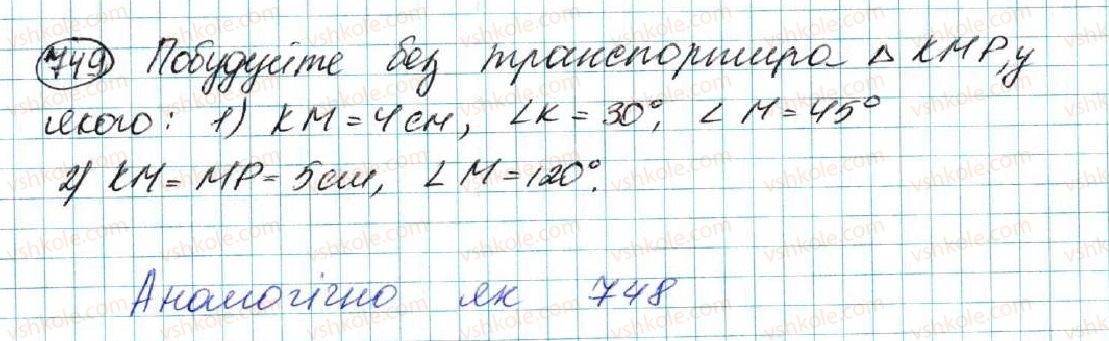 749 Побудуйте без транспортира △ KMP, у
якого: 1) KM = 4 см, ∠K = 30°, ∠M = 45°
2) KM = MP = 5 см, ∠M = 120°.
Аналогічно як 748